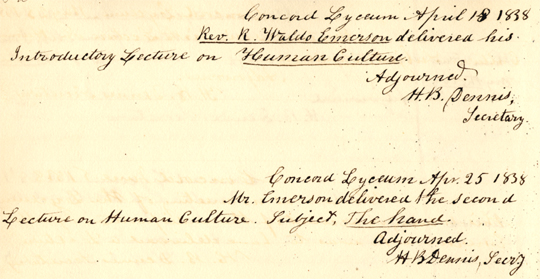 Concord Lyceum April 18 1838
Rev. R. Waldo Emerson delivered his
Introductory Lecture on Human Culture.
Adjourned.
H. B. Dennis,
Secretary.
Concord Lyceum Apr. 25 1838
Mr. Emerson delivered the second
Lecture on Human Culture. Subject, The hand.
Adjourned.
H B Dennis, Secry